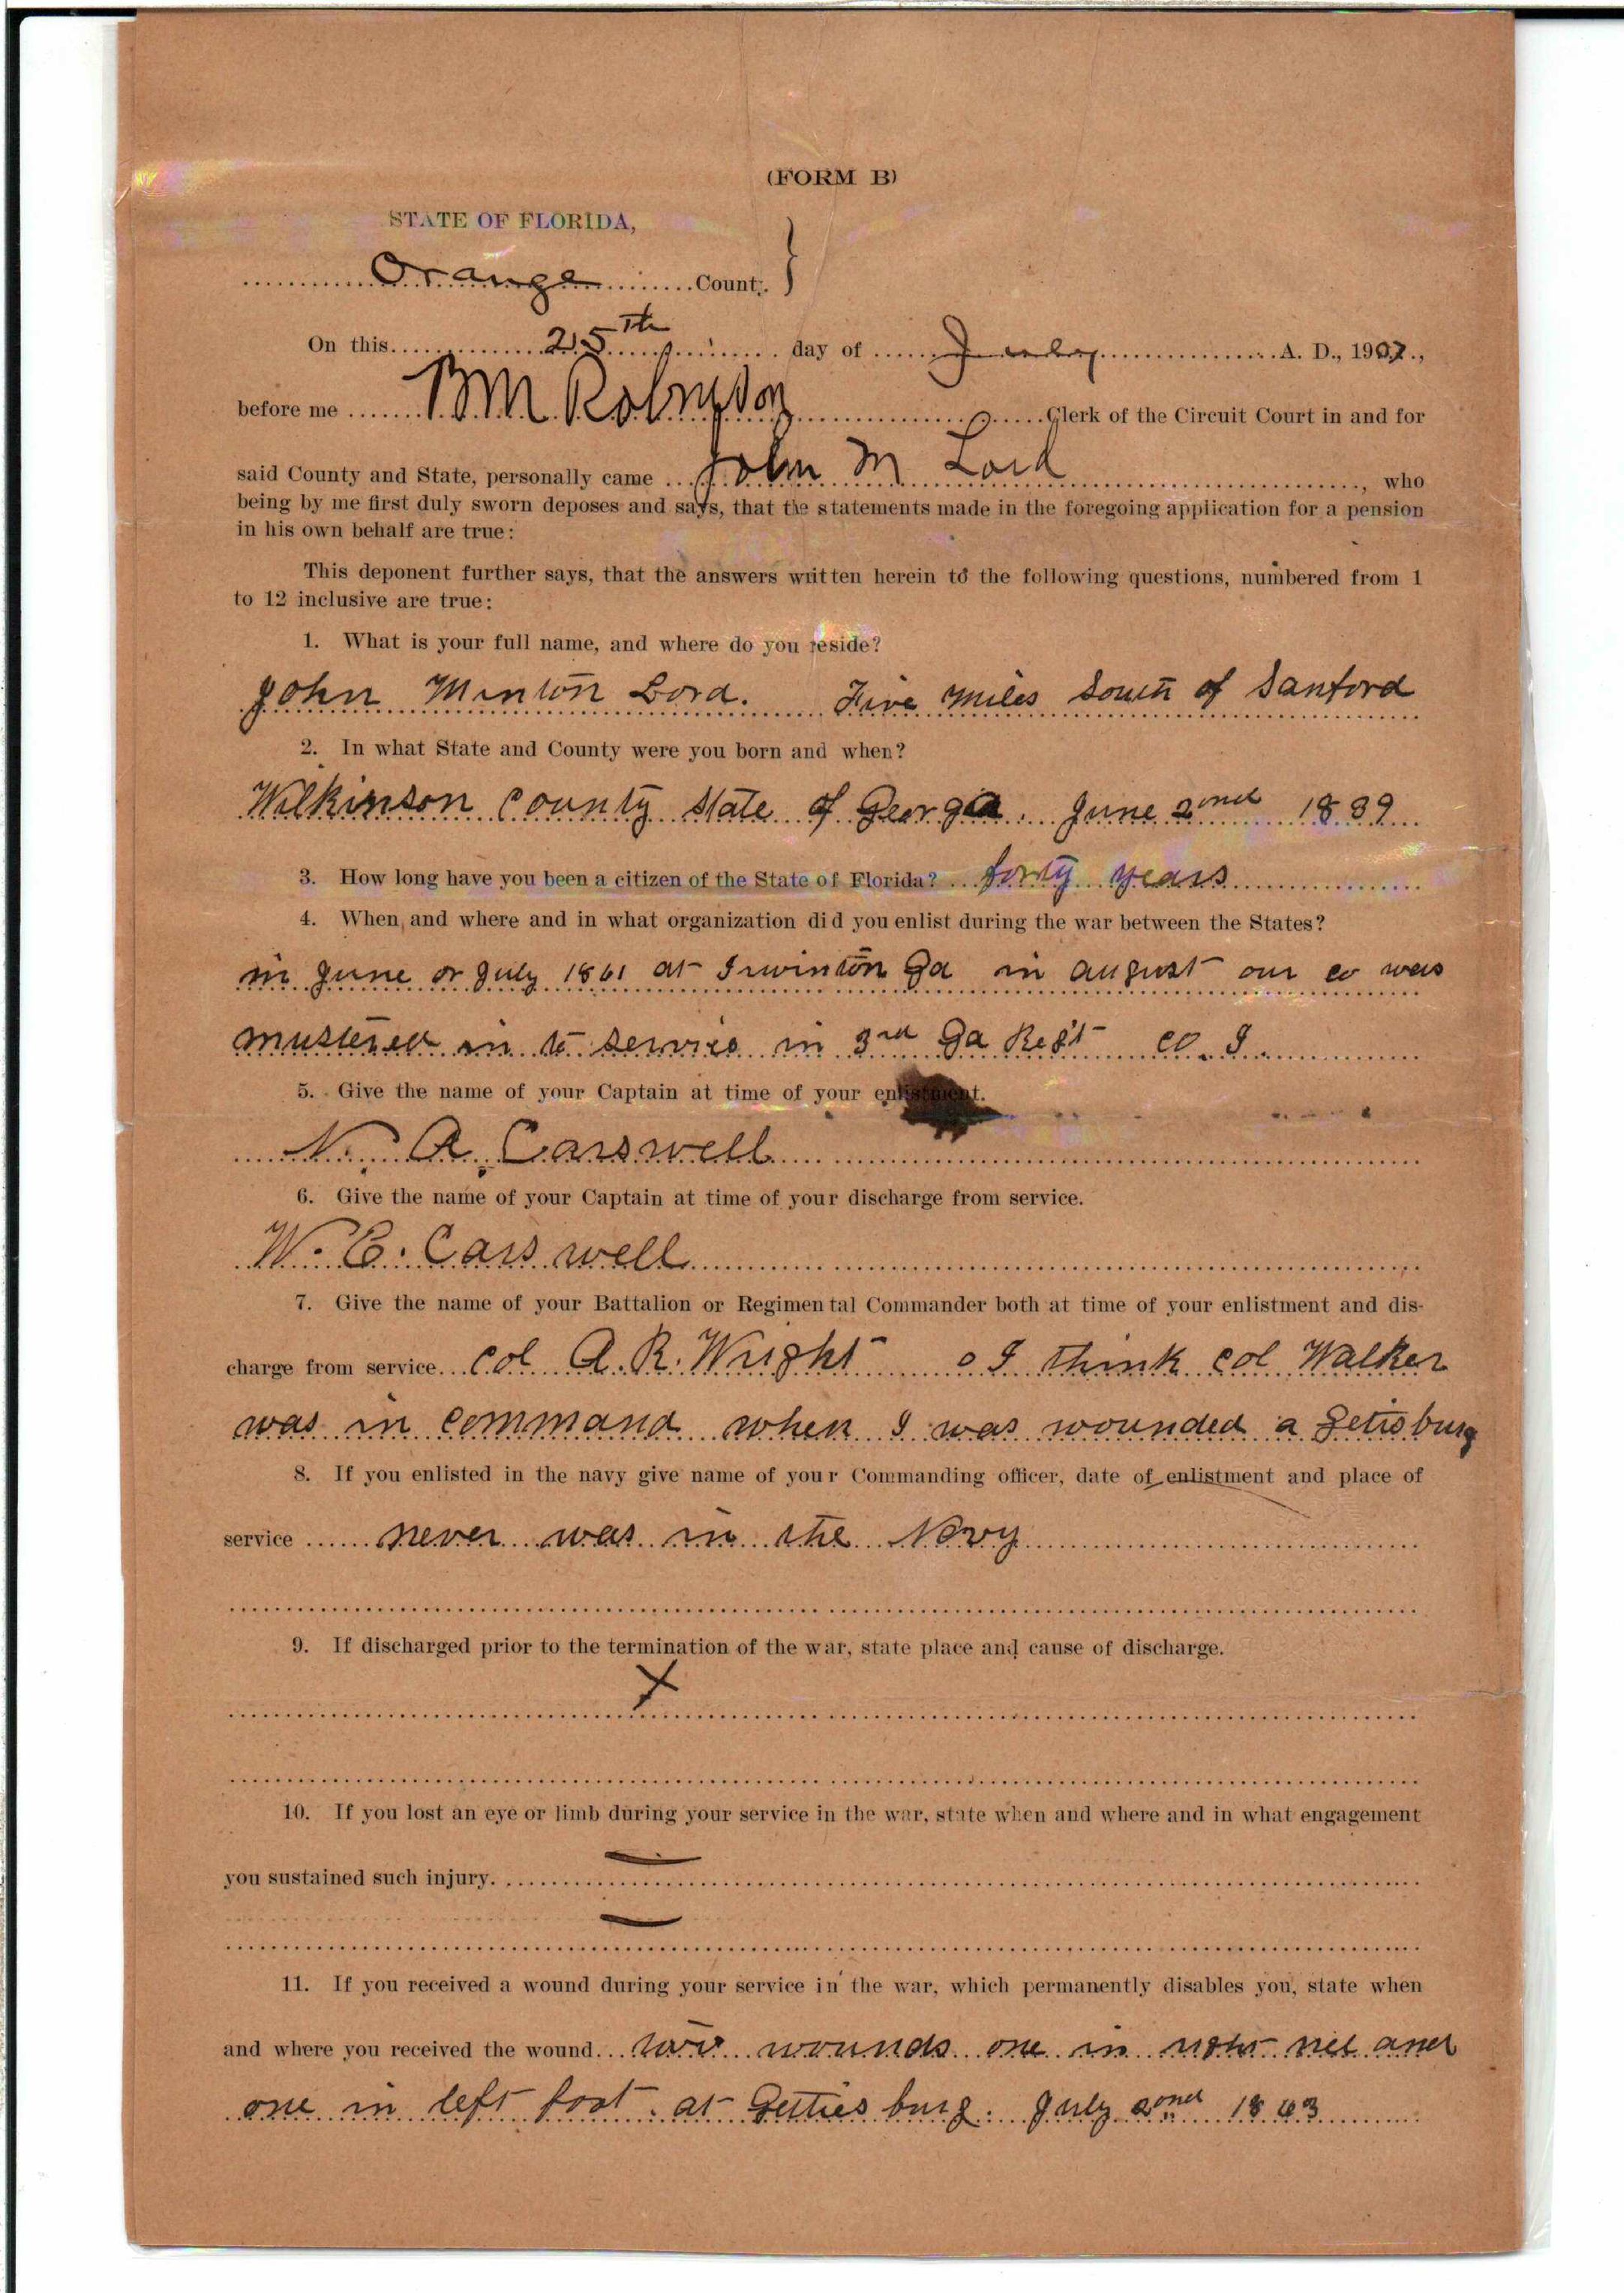 (FORM B)
STATE OF FLORIDA,
Orange County.
On this 25th day of July A. D., 1907.,
before me B M Robinson Clerk of the Circuit Court in and for
said County and State, personally came John M Lord, who
being by me first duly sworn deposes and says, that the statements made in the foregoing application for a pension
in his own behalf are true:
This deponent further says, that the answers written herein to the following questions, numbered from 1
to 12 inclusive are true:
1. What is your full name, and where do you reside?
John Minton Lord. Five miles South of Sanford
2. In what State and County were you born and when?
Wilkinson County State of Georgia. June 2nd 1839
3. How long have you been a citizen of the State of Florida? forty years
4. When, and where and in what organization did you enlist during the war between the States?
in June or July 1861 at Irwinton Ga in august our co was
mustered in to service in 3rd Ga Regt co. I.
5. Give the name of your Captain at time of your enlistment.
N. A. Carswell
6. Give the name of your Captain at time of your discharge from service.
W. C. Carswell
7. Give the name of your Battalion or Regimental Commander both at time of your enlistment and dis-
charge from service col A. R. Wright I think col Walker
was in command when I was wounded a Getisburg
8. If you enlisted in the navy give name of your Commanding officer, date of enlistment and place of
service never was in the Navy
9. If discharged prior to the termination of the war, state place and cause of discharge.
X
10. If you lost an eye or limb during your service in the war, state when and where and in what engagement
you sustained such injury.
11. If you received a wound during your service in the war, which permanently disables you, state when
and where you received the wound two wounds one in right and
one in left foot. at Gettiesburg. July 2nd 1863